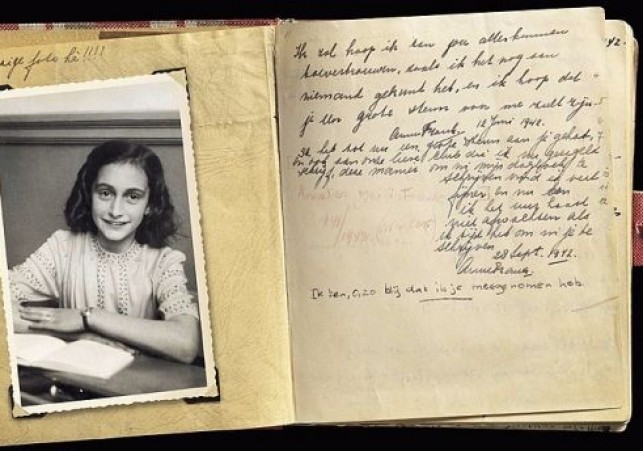 foto hè!!!!
42.
Ik zal hoop ik aan jou alles kunnen
toevertrouwen, zoals ik het nog aan
niemand gekund heb, en ik hoop dat
je een grote steun voor me zult zijn.
Anne Frank. 12 Juni 1942.
Ik heb tot nu een grote steun aan je gehad,
en ook aan onze lieve club die ik nu geregeld
schrijf, deze manier om in mijn dagboek te
schrijven vind ik veel
fijner en nu kan
ik het uur haast
niet afwachten als
ik tijd heb om in je te
schrijven.
28 Sept. 1942.
Anne Frank.
Ik ben, o, zo blij dat ik je meegenomen heb.